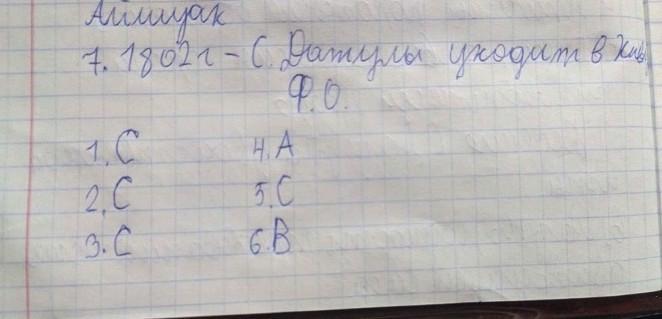 Айшуак
7. 1802г - С. Датулы уходит в Хиву
Ф.О.
1. С 4. А
2. С 5. С
3. С 6. В